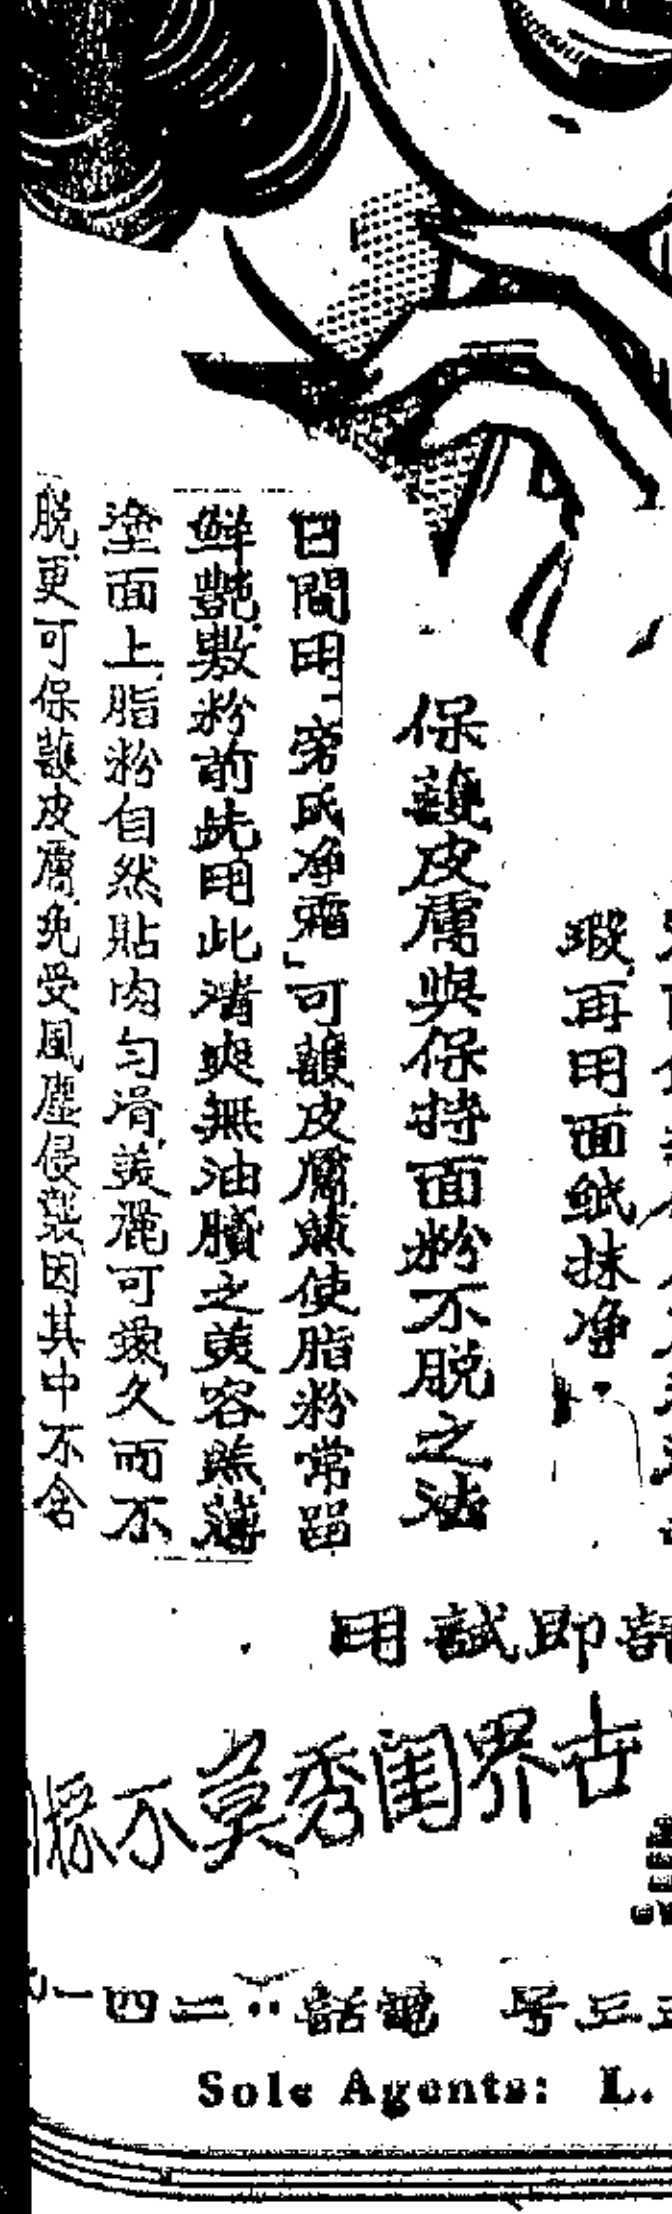 瑕再用面紙抹净
保護皮膚與保持面粉不脫之法
日間用「旁氏净霜」可護皮膚兼使脂粉常留
鮮艷敷粉前先用此清爽無油膩之美容品薄
塗面上脂粉自然貼肉匀滑美麗可愛久而不
脫更可保護皮膚免受風塵侵襲因其中不含
即試用
世界閨秀莫不
三三号 電話：二四一
Sole Agents: L.